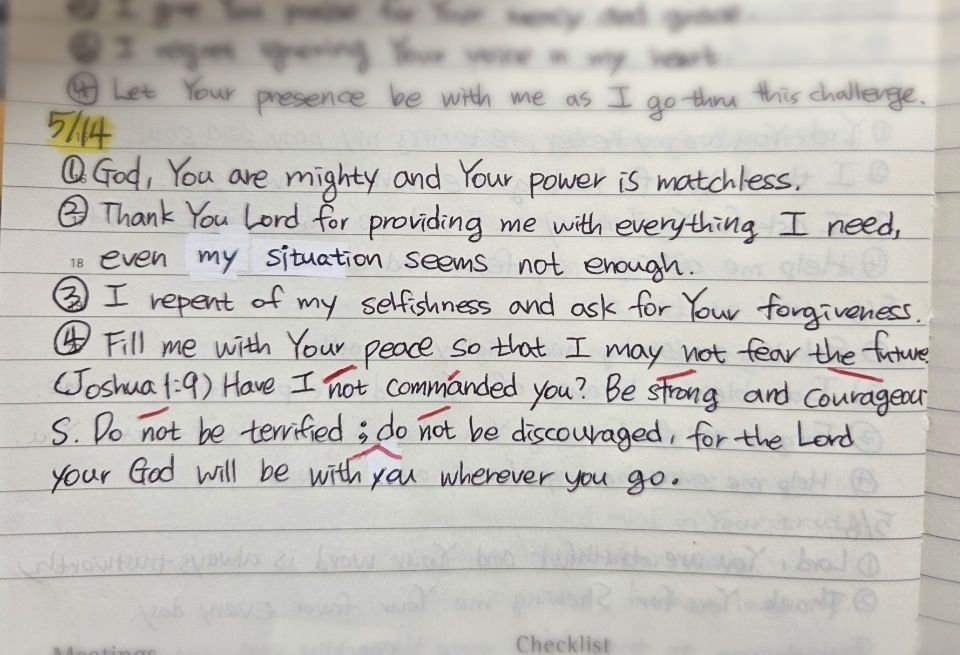 ② I give You praise for Your mercy and grace.
③ I regret ignoring Your voice in my heart.
④ Let Your presence be with me as I go thru this challenge.
5/14
① God, You are mighty and Your power is matchless.
② Thank You Lord for providing me with everything I need,
18 even my situation seems not enough.
③ I repent of my selfishness and ask for Your forgiveness.
④ Fill me with Your peace so that I may not fear the future
(Joshua 1:9) Have I not commanded you? Be strong and courageou
s. Do not be terrified; do not be discouraged, for the Lord
your God will be with you wherever you go.
Meetings
Checklist